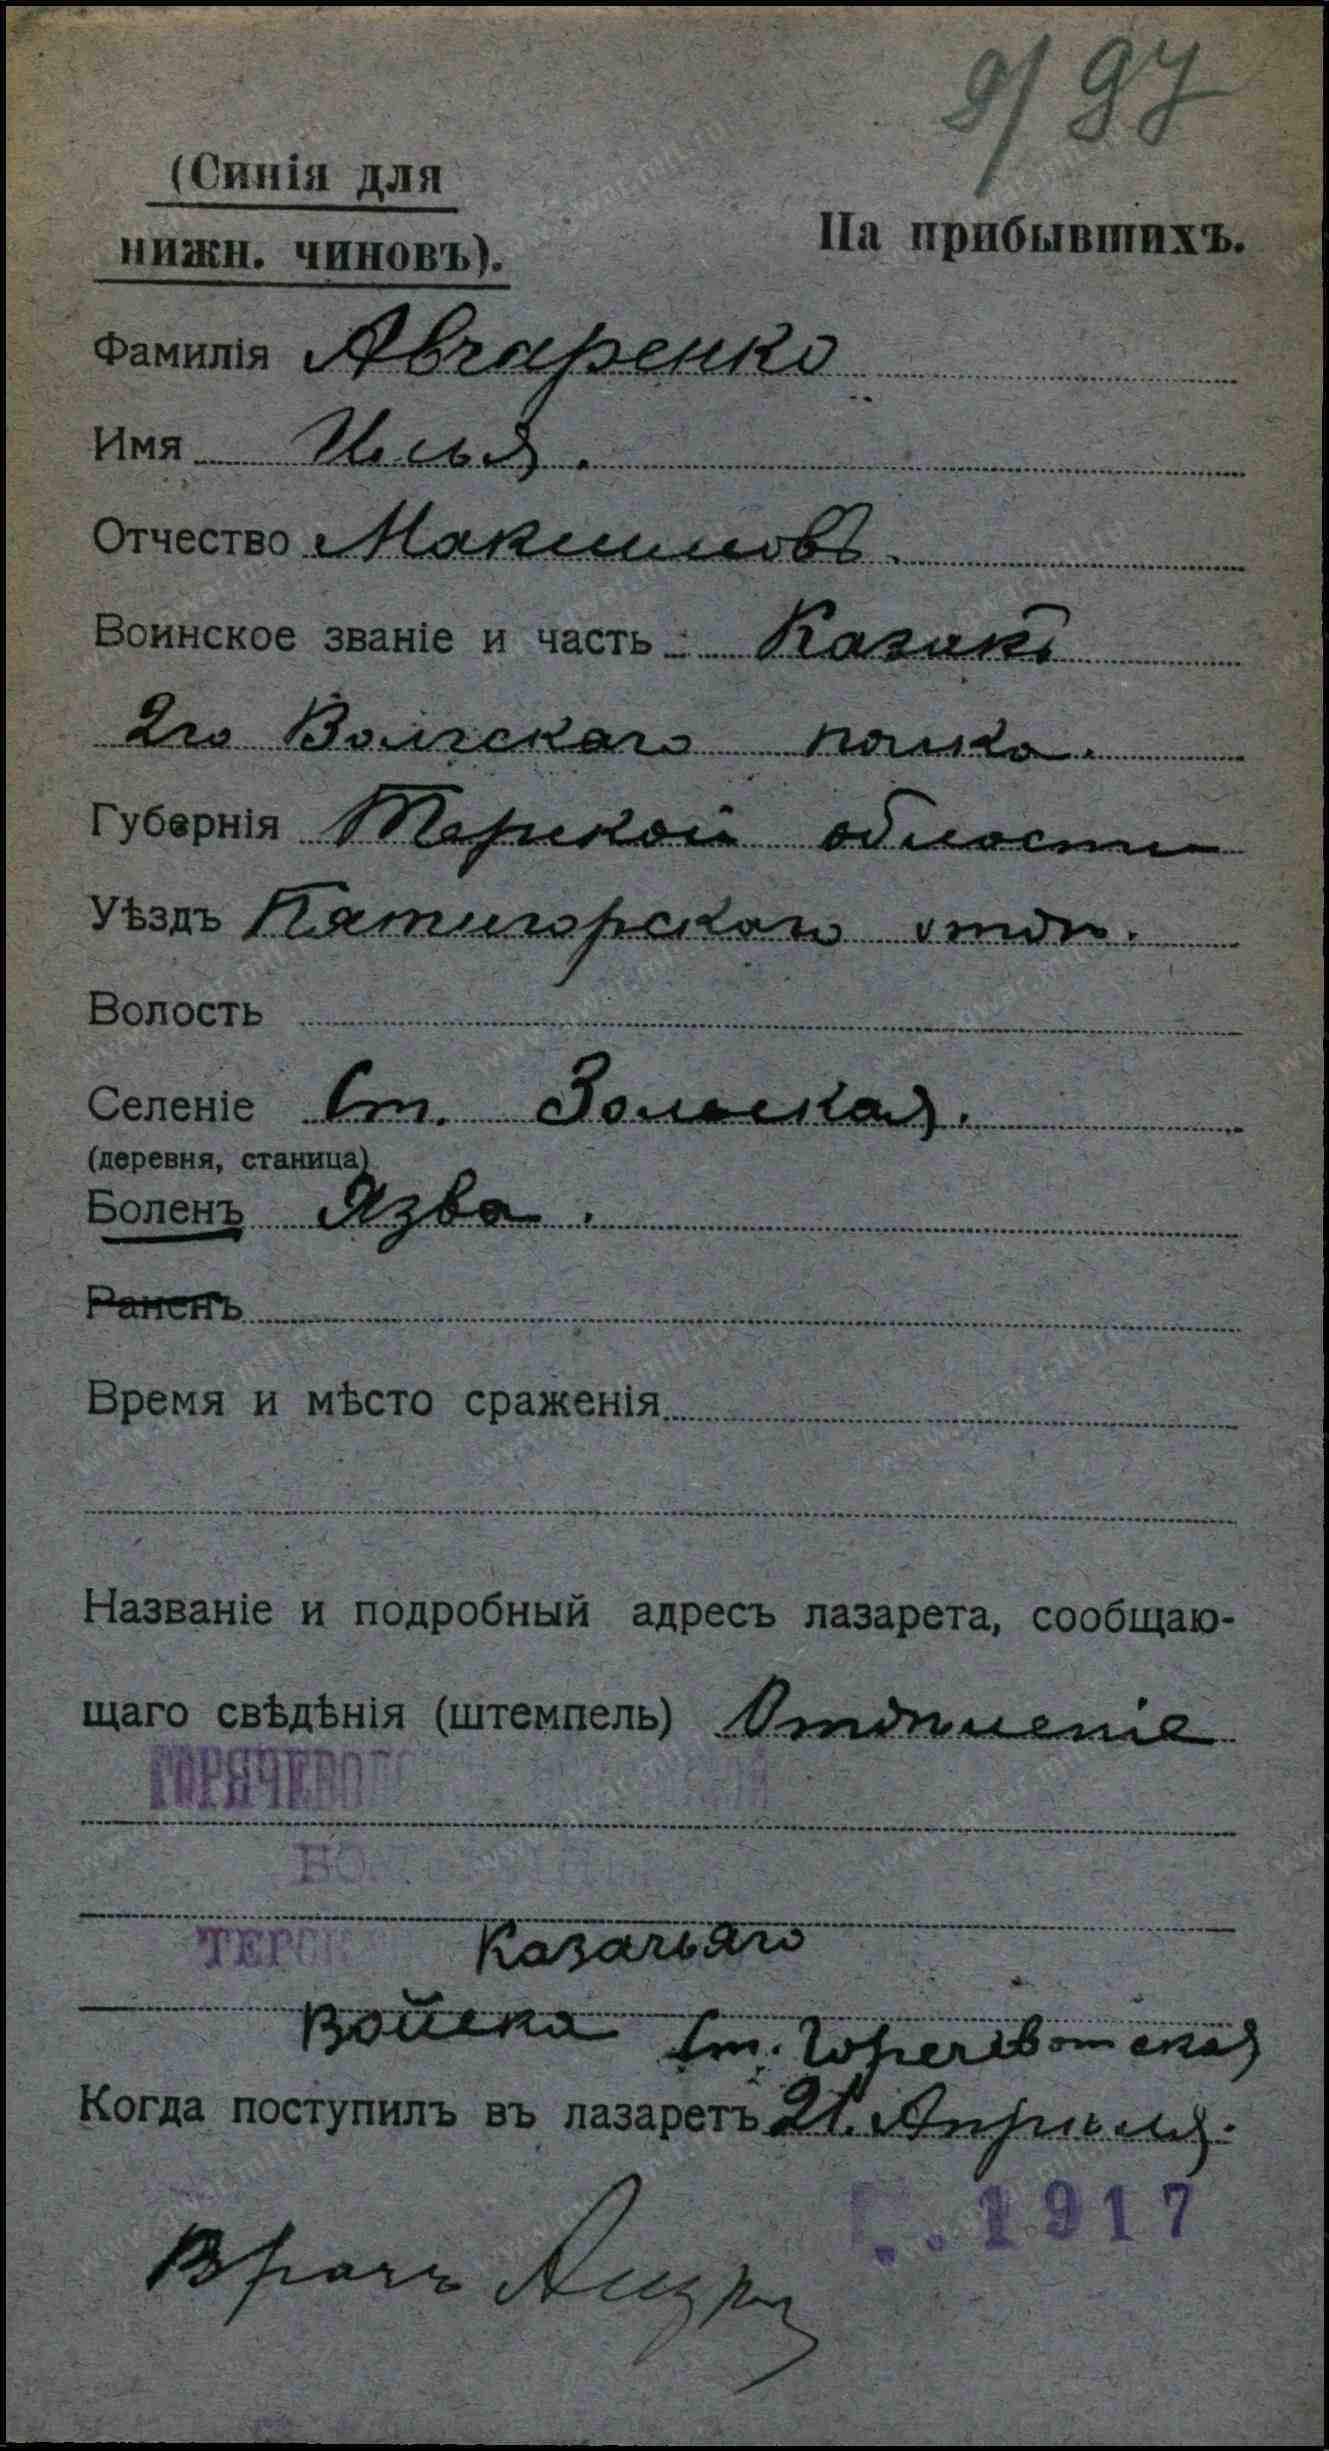 9/97
(Синія для
нижн. чиновъ).
На прибывшихъ.
Фамилія Авчаренко
Имя Илья.
Отчество Максимовъ.
Воинское званіе и часть Казакъ
2го Волгскаго полка.
Губернія Терской области
Уѣздъ Пятигорскаго отдѣ.
Волость
Селеніе Ст. Зольская.
(деревня, станица)
Боленъ Язва.
Раненъ
Время и мѣсто сраженія
Названіе и подробный адресъ лазарета, сообщаю-
щаго свѣдѣнія (штемпель) Отдѣленіе
Казачьяго
Войска Ст. Горячеводская
Когда поступилъ въ лазаретъ 21. Апрѣля.
1917
Врачъ